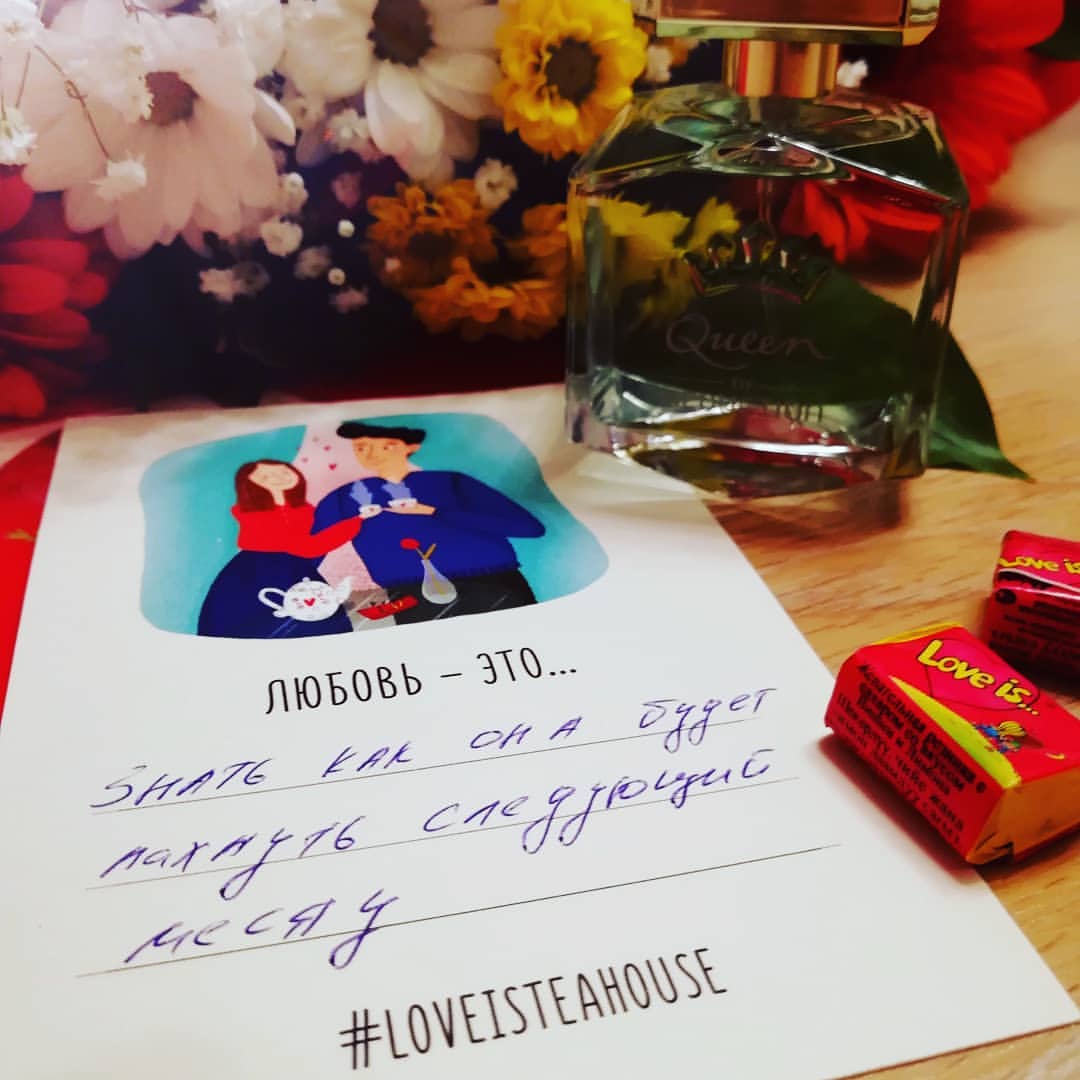 Queen
OF
ЛЮБОВЬ – ЭТО...
Знать как она будет
пахнуть следующий
месяц
#LOVEISTEAHOUSE
Love is...
Love is